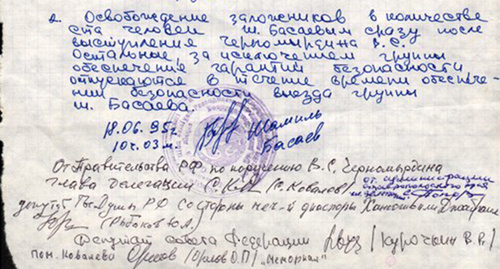 2. Освобождение заложников в количестве
ста человек Ш. Басаевым сразу после
выступления Черномырдина В.С.
Остальные за исключением группы
обеспечения гарантий безопасности
отпускаются в течение времени обеспече-
ний безопасности выезда группы
Ш. Басаева.
18.06.95г. Шамиль
10ч.03м. Басаев
От Правительства РФ по поручению В.С. Черномырдина
глава делегации С. Ковалев/
от администрации
Ставропольского края
депутат Гос. Думы РФ со стороны чеч-й диаспоры
(Рыбаков Ю.А.)
Депутат совета Федерации /Курочкин В.В./
пом. Ковалева Орлов (Орлов О.П.) "Мемориал"